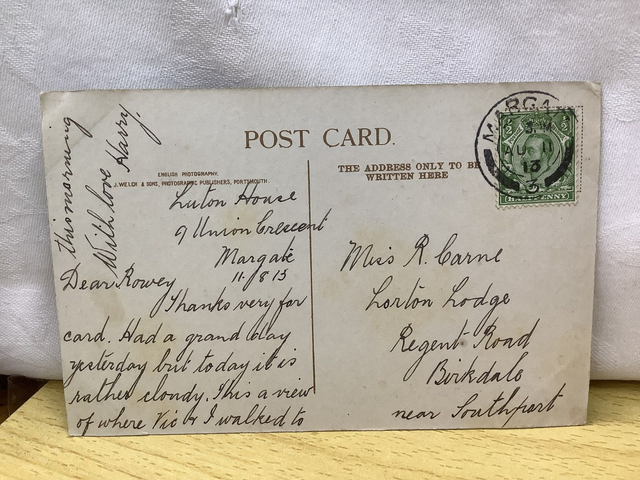 POST CARD.
ENGLISH PHOTOGRAPHY.
J. WELCH & SONS, PHOTOGRAPHIC PUBLISHERS, PORTSMOUTH.
THE ADDRESS ONLY TO BE
WRITTEN HERE
MARGA
AU 11
13
HALFPENNY
Luton House
9 Union Crescent
Margate
11. 8 13
Dear Rowey
Thanks very for
card. Had a grand day
yesterday but today it is
rather cloudy. This a view
of where Vic & I walked to
this morning
With love Harry
Miss R. Carne
Lorton Lodge
Regent Road
Birkdale
near Southport